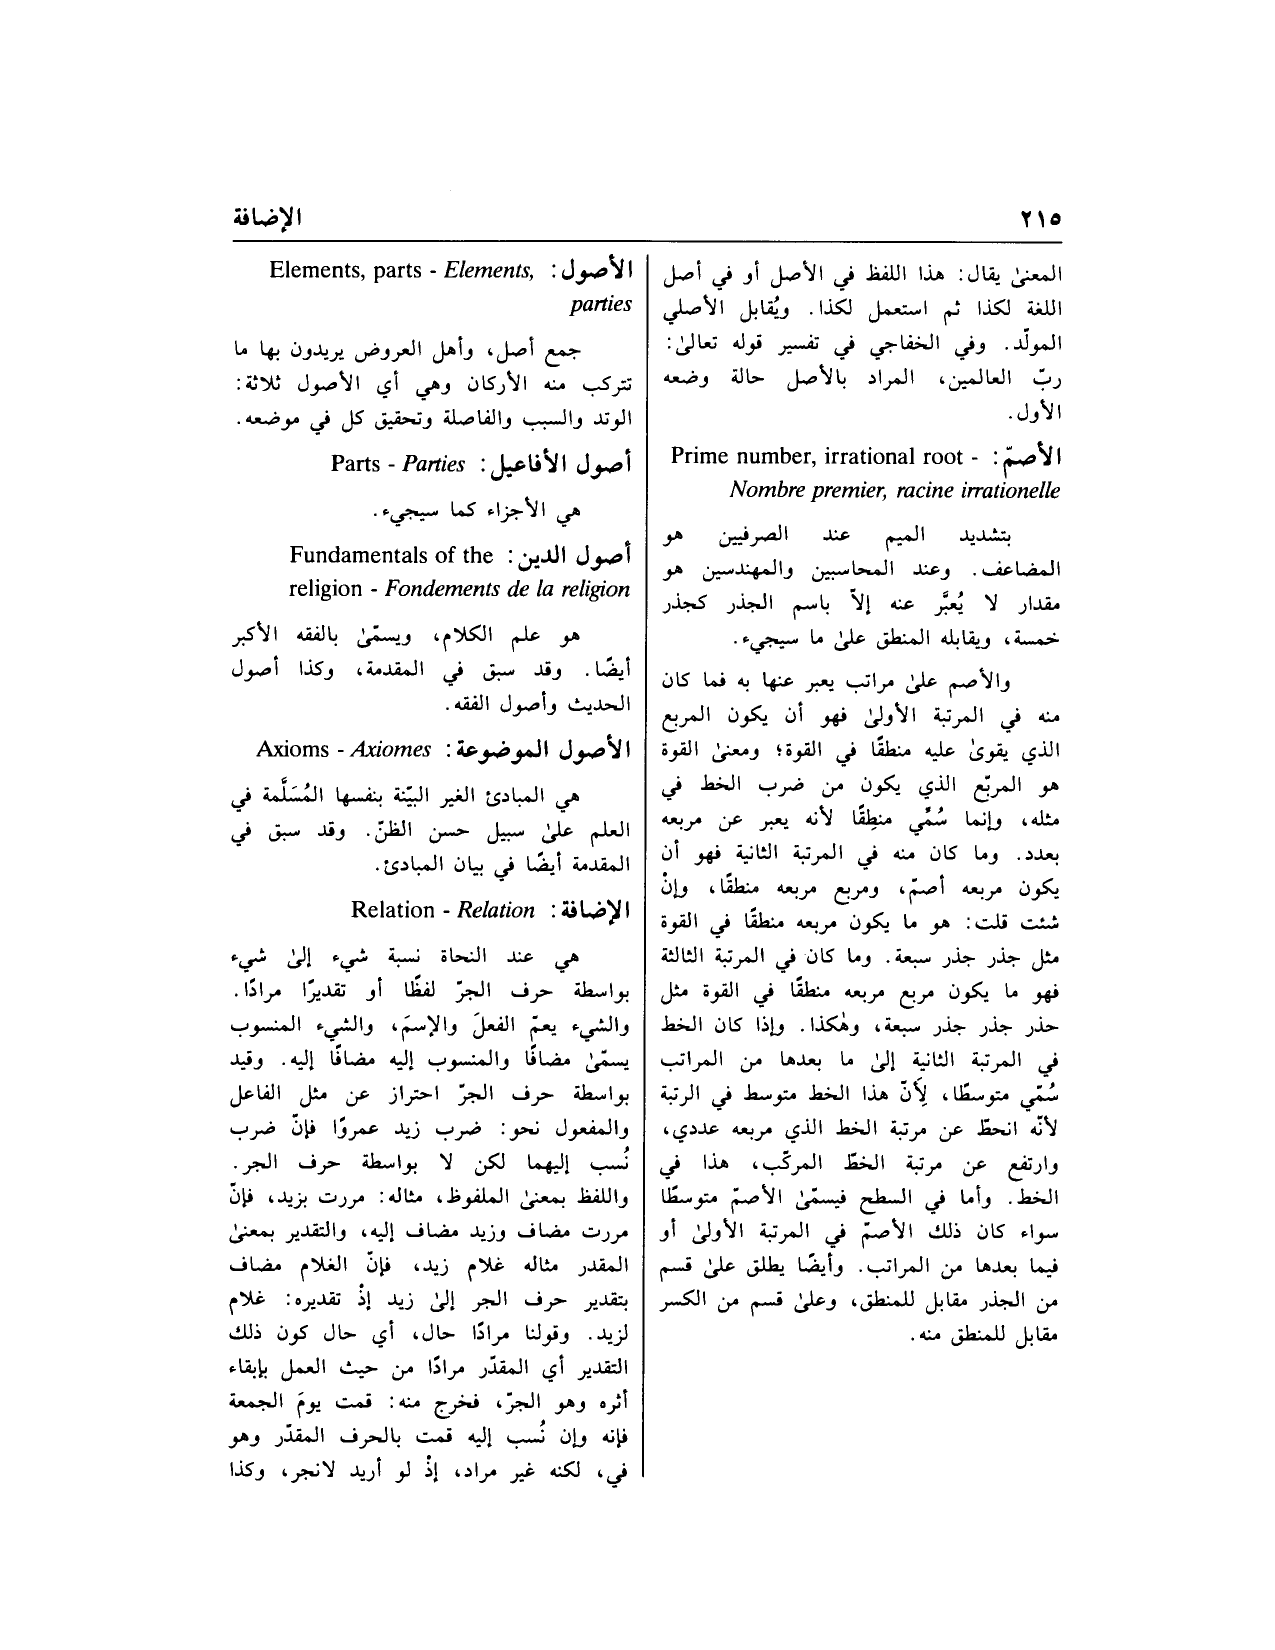 ٢١٥
الإضافة
المعنىٰ يقال: هذا اللفظ في الأصل أو في أصل
اللغة لكذا ثم استعمل لكذا. ويُقابل الأصلي
المولّد. وفي الخفاجي في تفسير قوله تعالىٰ:
ربّ العالمين، المراد بالأصل حالة وضعه
الأول.
الأصمّ: Prime number, irrational root -
Nombre premier, racine irrationelle
بتشديد الميم عند الصرفيين هو
المضاعف. وعند المحاسبين والمهندسين هو
مقدار لا يُعبَّر عنه إلاّ باسم الجذر كجذر
خمسة، ويقابله المنطق علىٰ ما سيجيء.
والأصم علىٰ مراتب يعبر عنها به فما كان
منه في المرتبة الأولىٰ فهو أن يكون المربع
الذي يقوىٰ عليه منطقًا في القوة؛ ومعنىٰ القوة
هو المربّع الذي يكون من ضرب الخط في
مثله، وإنما سُمِّي منطِقًا لأنه يعبر عن مربعه
بعدد. وما كان منه في المرتبة الثانية فهو أن
يكون مربعه أصمّ، ومربع مربعه منطقًا، وإنْ
شئت قلت: هو ما يكون مربعه منطقًا في القوة
مثل جذر جذر سبعة. وما كان في المرتبة الثالثة
فهو ما يكون مربع مربعه منطقًا في القوة مثل
حذر جذر جذر سبعة، وهٰكذا. وإذا كان الخط
في المرتبة الثانية إلىٰ ما بعدها من المراتب
سُمّي متوسطًا، لِأَنّ هذا الخط متوسط في الرتبة
لأنّه انحطّ عن مرتبة الخط الذي مربعه عددي،
وارتفع عن مرتبة الخطّ المركّب، هذا في
الخط. وأما في السطح فيسمّىٰ الأصمّ متوسطًا
سواء كان ذلك الأصمّ في المرتبة الأولىٰ أو
فيما بعدها من المراتب. وأيضًا يطلق علىٰ قسم
من الجذر مقابل للمنطق، وعلىٰ قسم من الكسر
مقابل للمنطق منه.
الأصول: Elements, parts - Elements,
parties
جمع أصل، وأهل العروض يريدون بها ما
تتركب منه الأركان وهي أي الأصول ثلاثة:
الوتد والسبب والفاصلة وتحقيق كل في موضعه.
أصول الأفاعيل: Parts - Parties
هي الأجزاء كما سيجيء.
أصول الدين: Fundamentals of the
religion - Fondements de la religion
هو علم الكلام، ويسمّىٰ بالفقه الأكبر
أيضًا. وقد سبق في المقدمة، وكذا أصول
الحديث وأصول الفقه.
الأصول الموضوعة: Axioms - Axiomes
هي المبادئ الغير البيّنة بنفسها المُسَلَّمة في
العلم علىٰ سبيل حسن الظنّ. وقد سبق في
المقدمة أيضًا في بيان المبادئ.
الإضافة: Relation - Relation
هي عند النحاة نسبة شيء إلىٰ شيء
بواسطة حرف الجرّ لفظًا أو تقديرًا مرادًا.
والشيء يعمّ الفعلَ والإسمَ، والشيء المنسوب
يسمّىٰ مضافًا والمنسوب إليه مضافًا إليه. وقيد
بواسطة حرف الجرّ احتراز عن مثل الفاعل
والمفعول نحو: ضرب زيد عمروًا فإنّ ضرب
نُسب إليهما لكن لا بواسطة حرف الجر.
واللفظ بمعنىٰ الملفوظ، مثاله: مررت بزيد، فإنّ
مررت مضاف وزيد مضاف إليه، والتقدير بمعنىٰ
المقدر مثاله غلام زيد، فإنّ الغلام مضاف
بتقدير حرف الجر إلىٰ زيد إذْ تقديره: غلام
لزيد. وقولنا مرادًا حال، أي حال كون ذلك
التقدير أي المقدّر مرادًا من حيث العمل بإبقاء
أثره وهو الجرّ، فخرج منه: قمت يومَ الجمعة
فإنه وإن نُسب إليه قمت بالحرف المقدّر وهو
في، لكنه غير مراد، إذْ لو أريد لانجر، وكذا